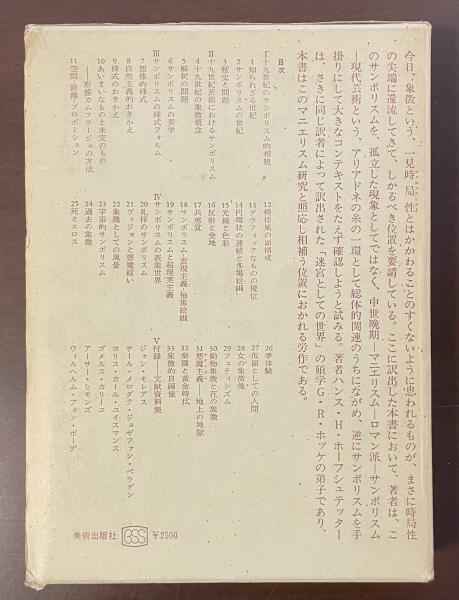 今日、象徴という、一見時局性とはかかわることのすくないように思われるものが、まさに時局性
の尖端に還流してきて、しかるべき位置を要請している。ここに訳出した本書において、著者は、こ
のサンボリスムを、孤立した現象としてではなく、中世晩期―マニエリスム―ロマン派―サンボリスム
―現代芸術という、アリアドネの糸の一環として総体的関連のうちにながめ、逆にサンボリスムを手
掛りにして大きなコンテキストをたえず確認しようと試みる。著者ハンス・H・ホーフシュテッター
は、さきに同じ訳者によって訳出された「迷宮としての世界」の碩学G・R・ホッケの弟子であり、
本書はこのマニエリスム研究と照応し相補う位置におかれる労作である。
目次
I 十九世紀のサンボリスム的相貌
1 知られざる世紀
2 サンボリスムの世紀
3 歴史と問題
II 十九世紀芸術におけるサンボリスム
4 十九世紀の象徴概念
5 解釈の問題
6 サンボリスムの美学
III サンボリスムの様式フィルム
7 想像的様式
8 自然主義的おきかえ
9 様式のおきかえ
10 あいまいなものと未完のもの
―形態カムフラージュの方法
11 空間・距離・プロポーション
12 模様風の画面構成
13 グラフィックなものの優位
14 円環状の連続と多場絵画
15 光線と色彩
16 反射と余地
17 共感覚
18 サンボリスム・表現主義・抽象絵画
19 サンボリスムと超現実主義
IV サンボリスムの表象世界
20 礼拝のサンボリスム
21 ヴィジョンと悪魔祓い
22 象徴としての風景
23 宇宙的サンボリスム
24 過去の象徴
25 死とエロス
26 夢体験
27 仮面としての人間
28 女の象徴像
29 フェティシズム
30 動物象徴と花の象徴
31 悪魔主義―地上の地獄
32 楽園と黄金時代
33 象徴的自画像
V 付録――文献資料集
ジャン・モレアス
サール・メロダク・ジョゼファン・ペラダン
ヨリス・カール・ユイスマンス
ゴメルス・カリーユ
アーサー・シモンズ
ウィルヘルム・フォン・ボーデ
美術出版社 BSS ¥2500